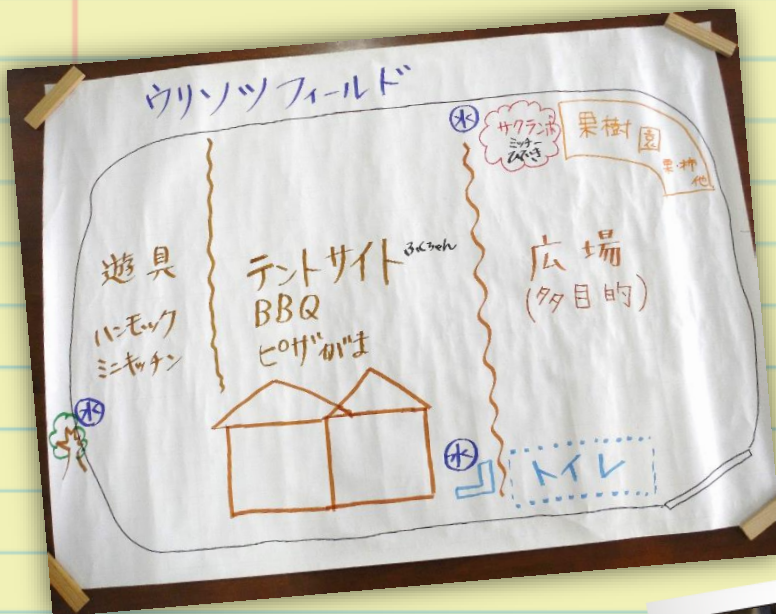 ウリソツフィールド
水
サクランボ
ミッチー
ひびき
果樹園
栗・柿
他
遊具
ハンモック
ミニキッチン
テントサイト
BBQ
ピザがま
広場
(多目的)
水
水
トイレ